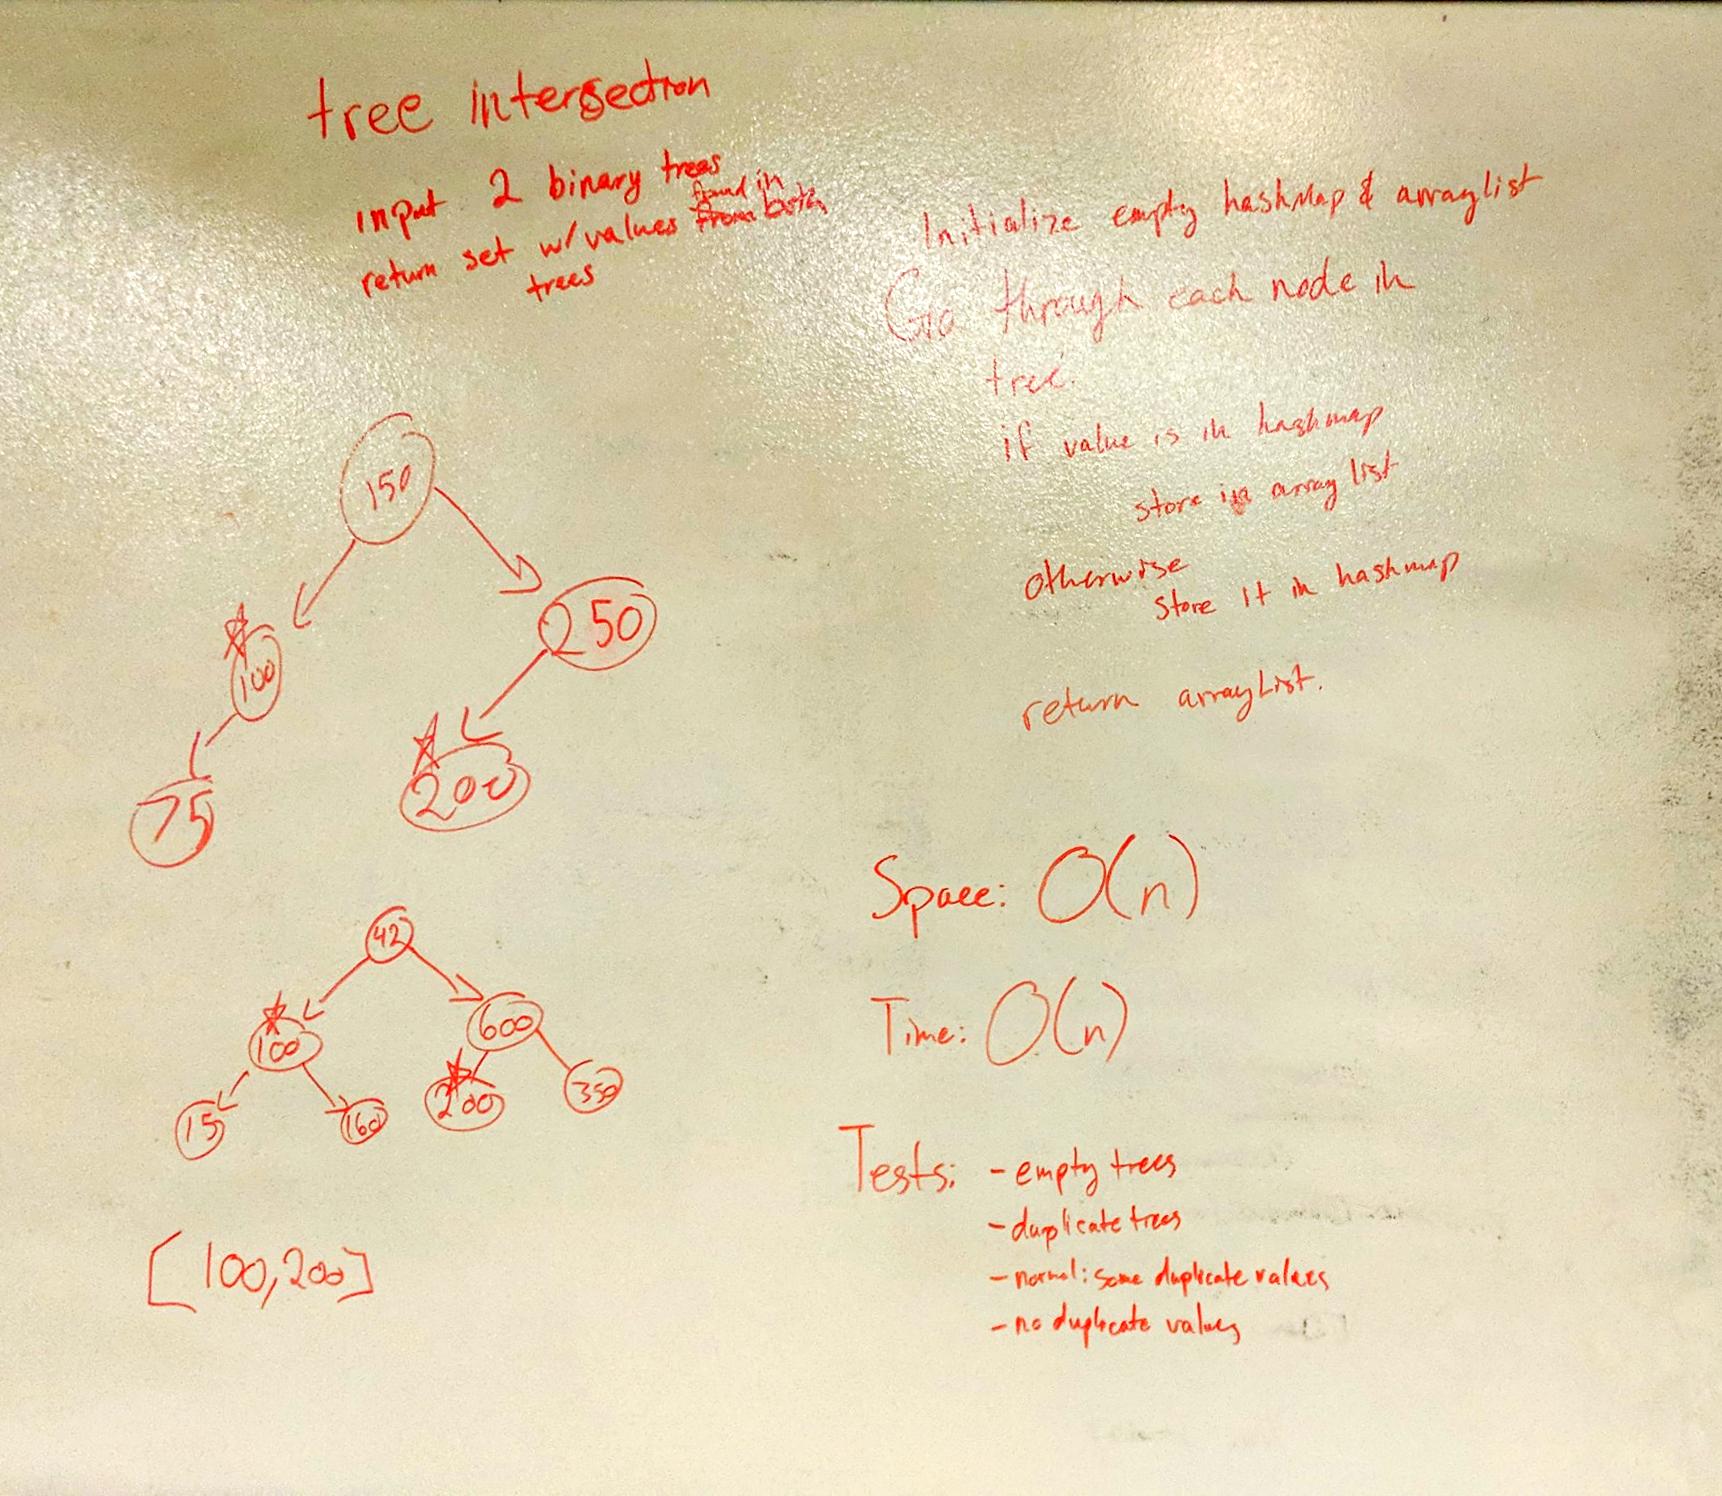 tree intersection
input 2 binary trees
found in
return set w/ values from both
trees
150
250
100
75
200
42
100
600
15
160
200
350
[100,200]
Initialize empty hashMap & arraylist
Go through each node in
tree.
if value is in hashmap
store in array list
otherwise
store it in hashmap
return arrayList.
Space: O(n)
Time: O(n)
Tests: - empty trees
- duplicate trees
- normal: some duplicate values
- no duplicate values